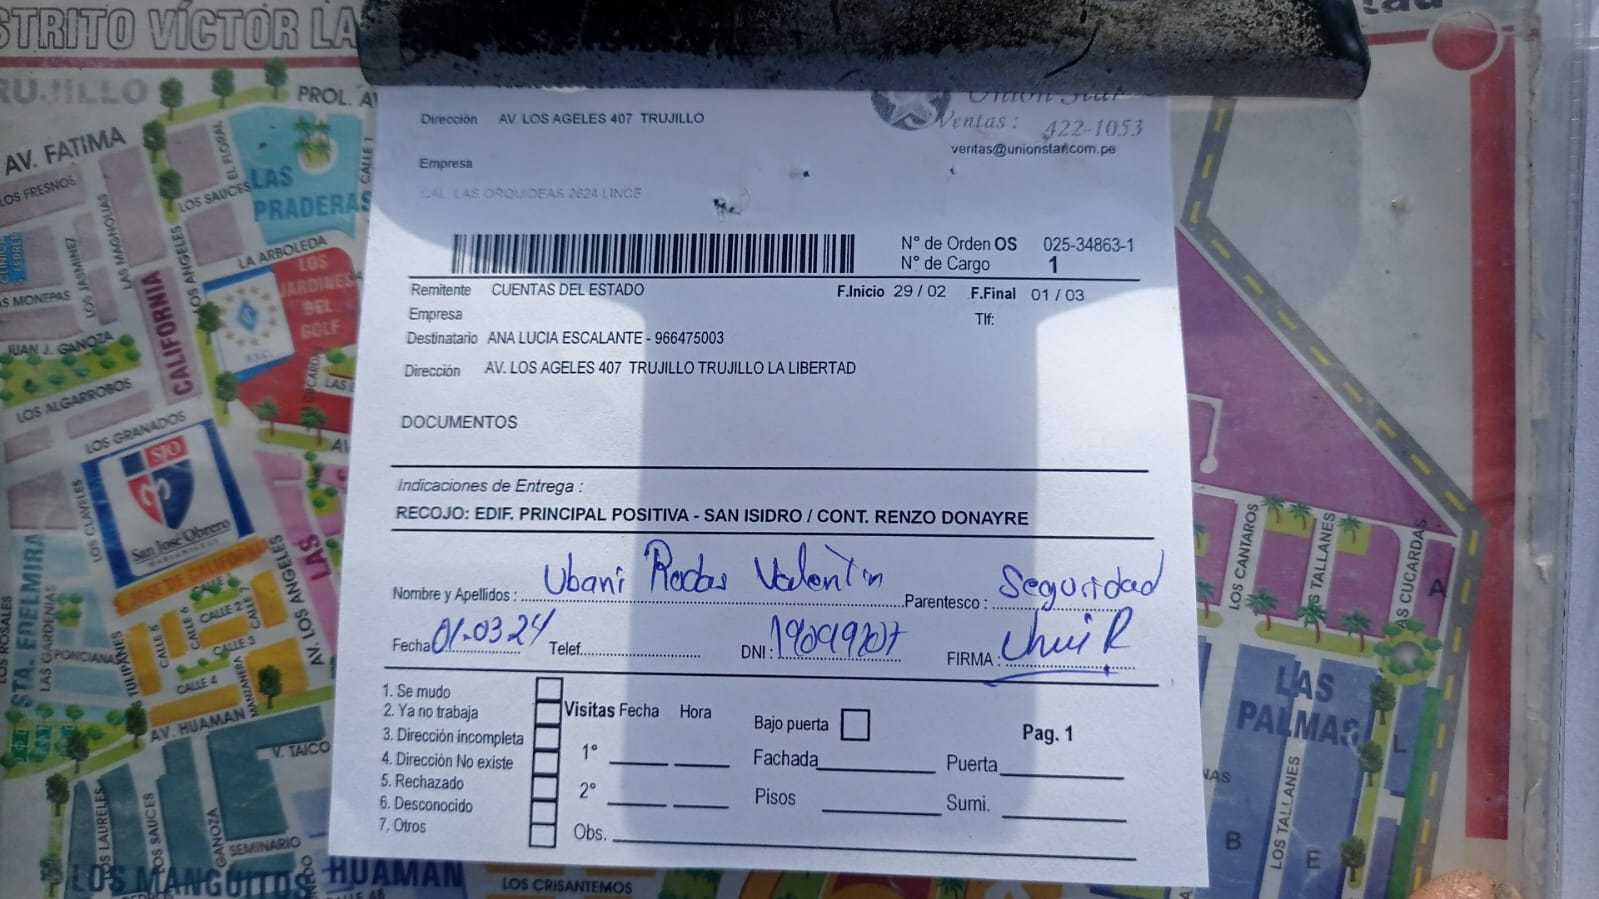 STRITO VÍCTOR LA
RUJILLO
PROL. AV
AV. FATIMA
LOS FRESNOS
LOS JASMINEZ
LAS MAGNOLIAS
EL FLORAL
LOS SAUCES
CALLE 1
LAS
PRADERAS
LA ARBOLEDA
LOS
JARDINES
DEL
GOLF
AS MONEPAS
JUAN J. GANOZA
CALIFORNIA
LOS ANGELES
LOS ALGARROBOS
LOS GRANADOS
LOS CLAVELES
SJO
San Jose Obrero
LAS
AV. LOS ANGELES
STA. EDELMIRA
LOS ROSALES
LAS GARDENIAS
PONCIANA
TULIPANES
CALLE 6
CALLE 5
CALLE 2
CALLE 3
CALLE 4
CALLE 7
MANZANERA
AV. HUAMAN
V. TAICO
LOS LAURELES
LOS SAUCES
GANOZA
SEMINARIO
LOS MANGUITOS
HUAMAN
LOS CRISANTEMOS
Dirección AV LOS AGELES 407 TRUJILLO
Union Star
Ventas : 422-1053
ventas@unionstar.com.pe
Empresa
CAL LAS ORQUIDEAS 2624 LINCE
N° de Orden OS 025-34863-1
N° de Cargo 1
Remitente CUENTAS DEL ESTADO F.Inicio 29 / 02 F.Final 01 / 03
Empresa Tlf:
Destinatario ANA LUCIA ESCALANTE - 966475003
Dirección AV. LOS AGELES 407 TRUJILLO TRUJILLO LA LIBERTAD
DOCUMENTOS
Indicaciones de Entrega :
RECOJO: EDIF. PRINCIPAL POSITIVA - SAN ISIDRO / CONT. RENZO DONAYRE
Nombre y Apellidos : Ubani Rodas Valentin Parentesco : Seguridad
Fecha 01.03.24 Telef. DNI : 19099207 FIRMA :
1. Se mudo
2. Ya no trabaja
3. Dirección incompleta
4. Dirección No existe
5. Rechazado
6. Desconocido
7. Otros
Visitas Fecha Hora
1°
2°
Obs.
Bajo puerta
Pag. 1
Fachada Puerta
Pisos Sumi.
LOS CANTAROS
S TALLANES
AS CUCARDAS
A
LAS
PALMAS
LOS TALLANES
L
B
E